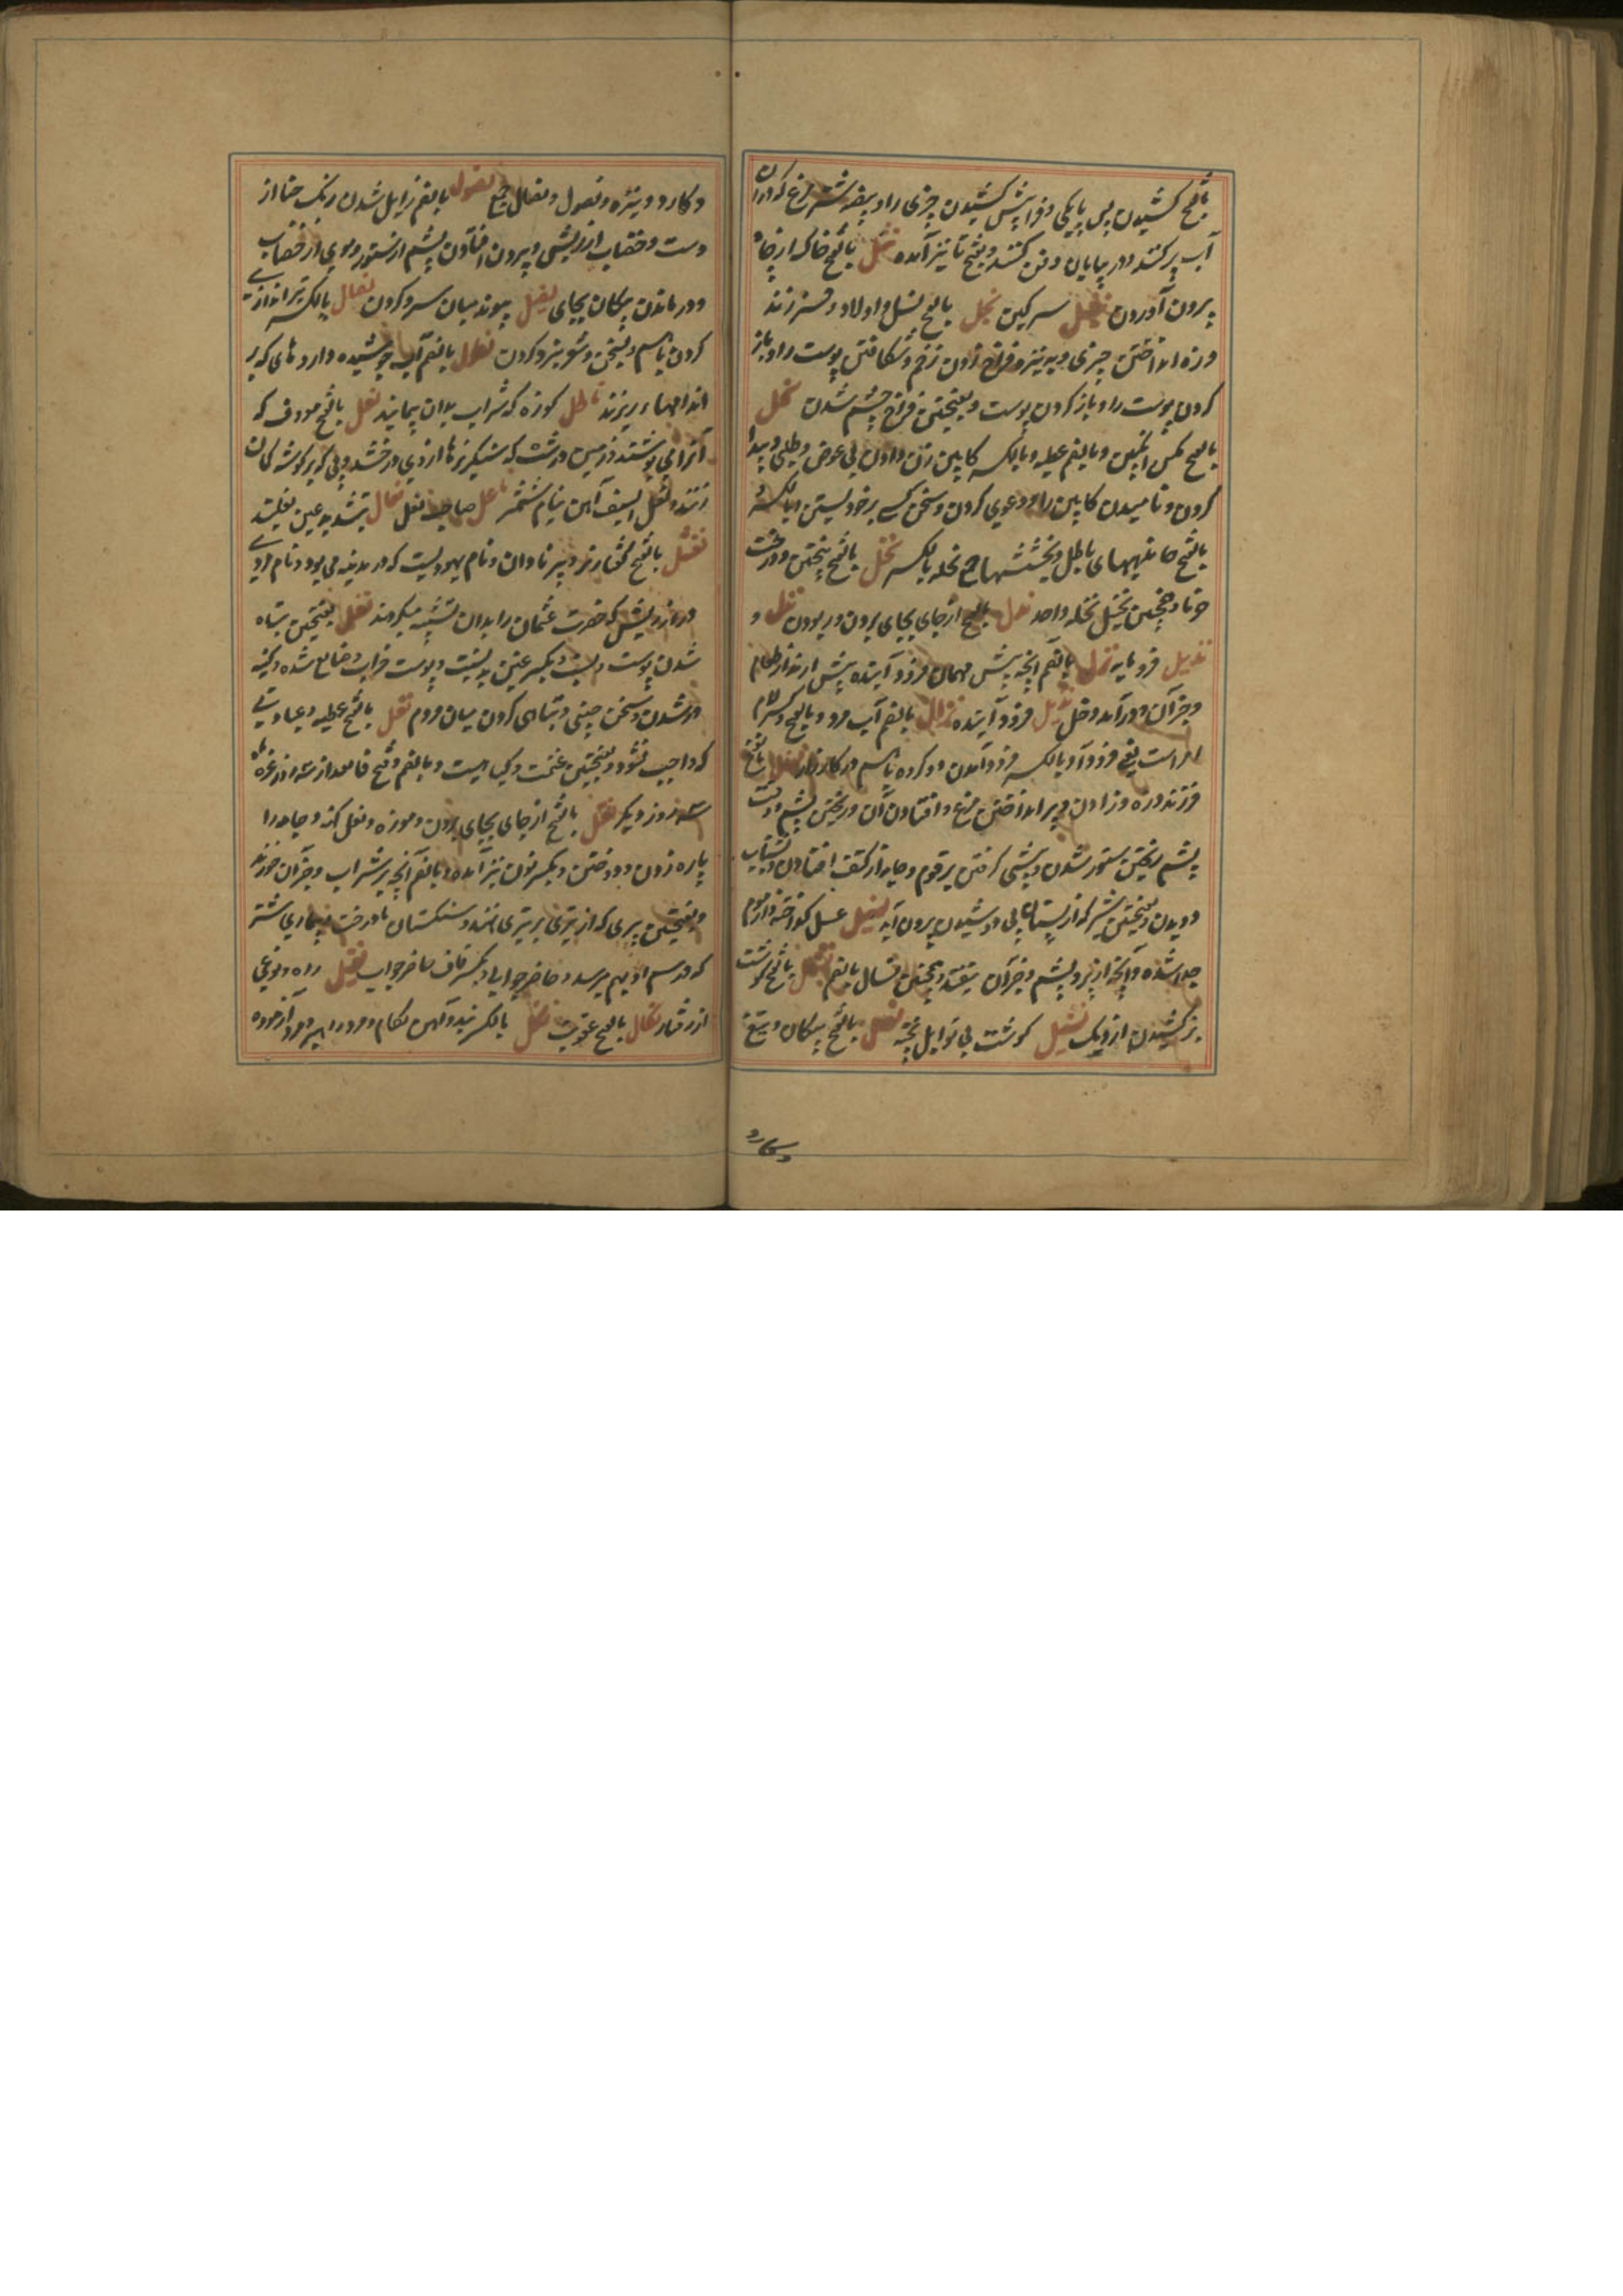 بالفتح کشیدن پس پایکی و فراپیش کشیدن چیزی را و بیضه شتر مرغ که در آن
آب پر کنند و در بیابان دفن کنند و بفتح تا نیز آمده نثل بالفتح خاک از چاه
بیرون آوردن نثیل سرکین نجل بالفتح نسل و اولاد و فرزند
و زه انداختن چیزی و به نیزه فراخ زدن زخم و شکافتن پوست را و باز
کردن پوست را و باز کردن پوست و بفتحتین فراخ چشم شدن نحل
بالفتح مکس انکبین و بالضم عطیه و بالکسر کابین زن دادن بی عوض و طلبی و پیدا
کردن و نامیدن کابین را و دعوی کردن و سخن کسی بر خود بستن و بالکسر
بالفتح باطل و بخششها جمع نحله بالکسر نخل بالفتح بیختن و درخت
خرما و همچنین نخیل نخله واحد ندل بالفتح از جای بجای بردن و ربودن نذل و
نذیل فرومایه نزل بالضم آنچه پیش مهمان فرود آینده پیش آرند از طعام
و جز آن و درآمد و دخل نزیل فرود آینده نزال بالضم آب مرد و بالفتح و کسر لام
امر است یعنی فرود آ و بالکسر فرود آمدن دو کروه باهم در کارزار نسل بالفتح
فرزند و زه و زادن و پر انداختن مرغ و افتادن آن و ریختن پشم و
پشم ریختن ستور شدن و پیشی کرفتن بر قوم و جامه از کتف افتادن و بشتاب
دویدن و بفتحتین شیر که از پستان بی دوشیدن بیرون آید نسیل عسل کداخته و از موم
جدا شده و آنچه از پر و پشم و جز آن بیفتد و همچنین نسال بالضم نشل بالفتح کوشت
برکشیدن از دیک نشیل کوشت بی توابل پخته نصل بالفتح پیکان و تیغ
و کارد
و کارد و نیزه و نصول و نصال جمع نصول بالضم زایل شدن رنک حنا از
دست و خضاب از ریش و بیرون افتادن پشم از ستور و موی از خضاب
و در ماندن پیکان بجای نصیل پیوند میان سر و کردن نضال بالکسر تیراندازی
کردن باهم و سخن و شعر نبرد کردن نطول بالضم آب جوشیده داروهای که بر
اندامها ریزند ناطل کوزه که شراب بدان پیمایند نعل بالفتح معروف که
آنرا می پوشند و زمین درشت که سنکریزها از وی درخشد و پی که بر کوشه کمان
زنند و نعل السیف آهن نیام شمشیر ناعل صاحب نعل نعال بتشدید عین نعلبند
نعثل بالفتح کفتار نر و پیر نادان و نام یهودیست که در مدینه می بود و نام مردی
دراز ریش که حضرت عثمان را بدان تشبیه میکردند نغل بفتحتین تباه
شدن پوست و بکسر غین پوست خراب و ضایع شده و کینه
ور شدن و سخن چینی و تباهی کردن میان مردم نفل بالفتح عطیه و عبادتی
که واجب نشود و بفتحتین غنیمت و کیاهیست و بالضم و فتح فا بعد از سه روز غره ماه
سه روز دیکر نقل بالفتح از جای بجای بردن و موزه و نعل کهنه و جامه را
پاره زدن و دوختن و بکسر نون نیز آمده و بالضم آنچه بر شراب و جز آن خورند
و بفتحتین پری که از تیری بر تیری نهند و سنکستان با درخت و بیماری شتر
که در سم او بهم رسد و حاضر جوابی و بکسر قاف حاضر جواب نقیل راه و نوعی
از رفتار نکال بالفتح عقوبت نکل بالکسر بند و آهن لکام و مرد دلیر و زورآزموده